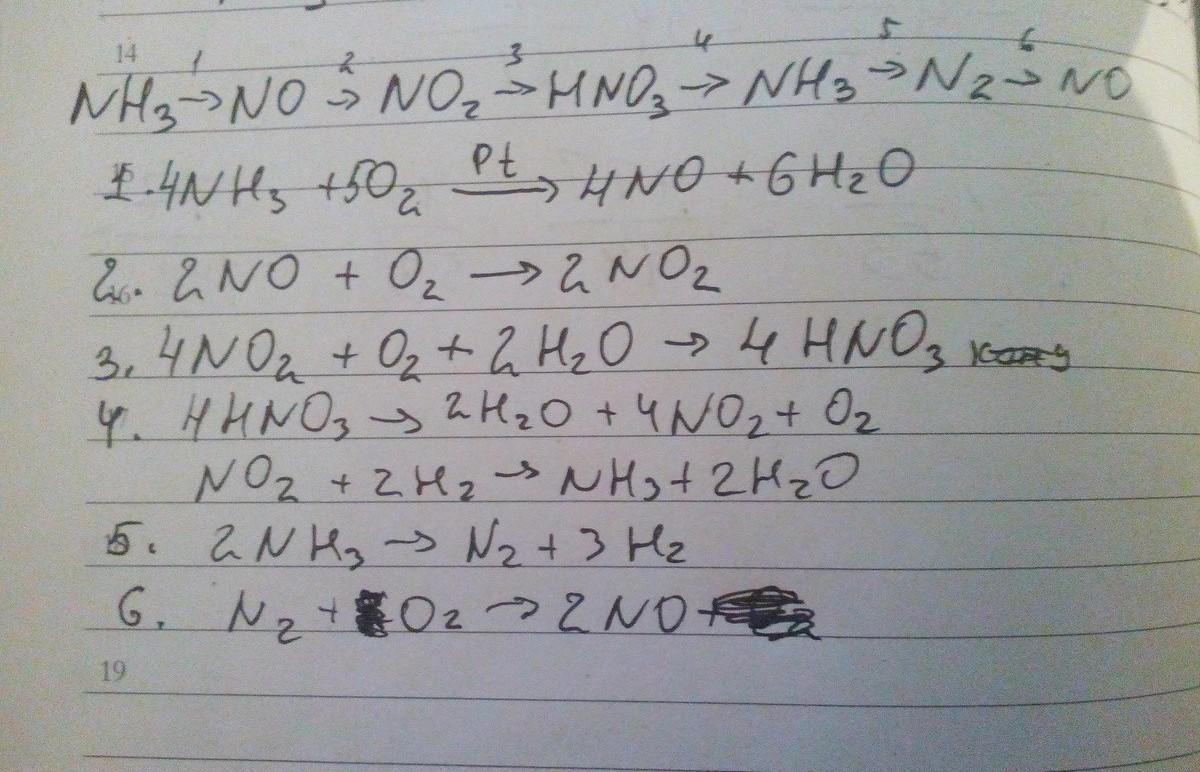 14
1 2 3 4 5 6
NH₃ → NO → NO₂ → HNO₃ → NH₃ → N₂ → NO
1. 4NH₃ + 5O₂ Pt → 4NO + 6H₂O
2. 2NO + O₂ → 2NO₂
3. 4NO₂ + O₂ + 2H₂O → 4HNO₃
4. 4HNO₃ → 2H₂O + 4NO₂ + O₂
NO₂ + 2H₂ → NH₃ + 2H₂O
5. 2NH₃ → N₂ + 3H₂
6. N₂ + O₂ → 2NO
19